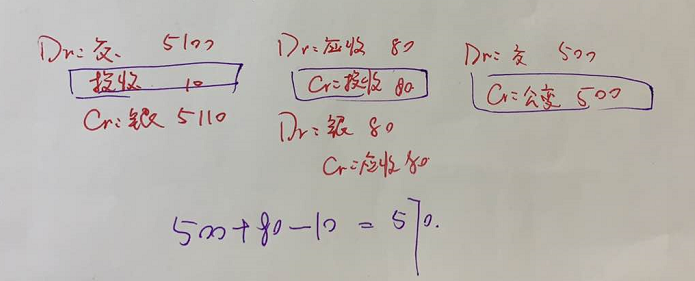 Dr: 交 5100
投收 10
Cr: 银 5110
Dr: 应收 80
Cr: 投收 80
Dr: 银 80
Cr: 应收 80
Dr: 交 500
Cr: 公变 500
500+80-10=570.